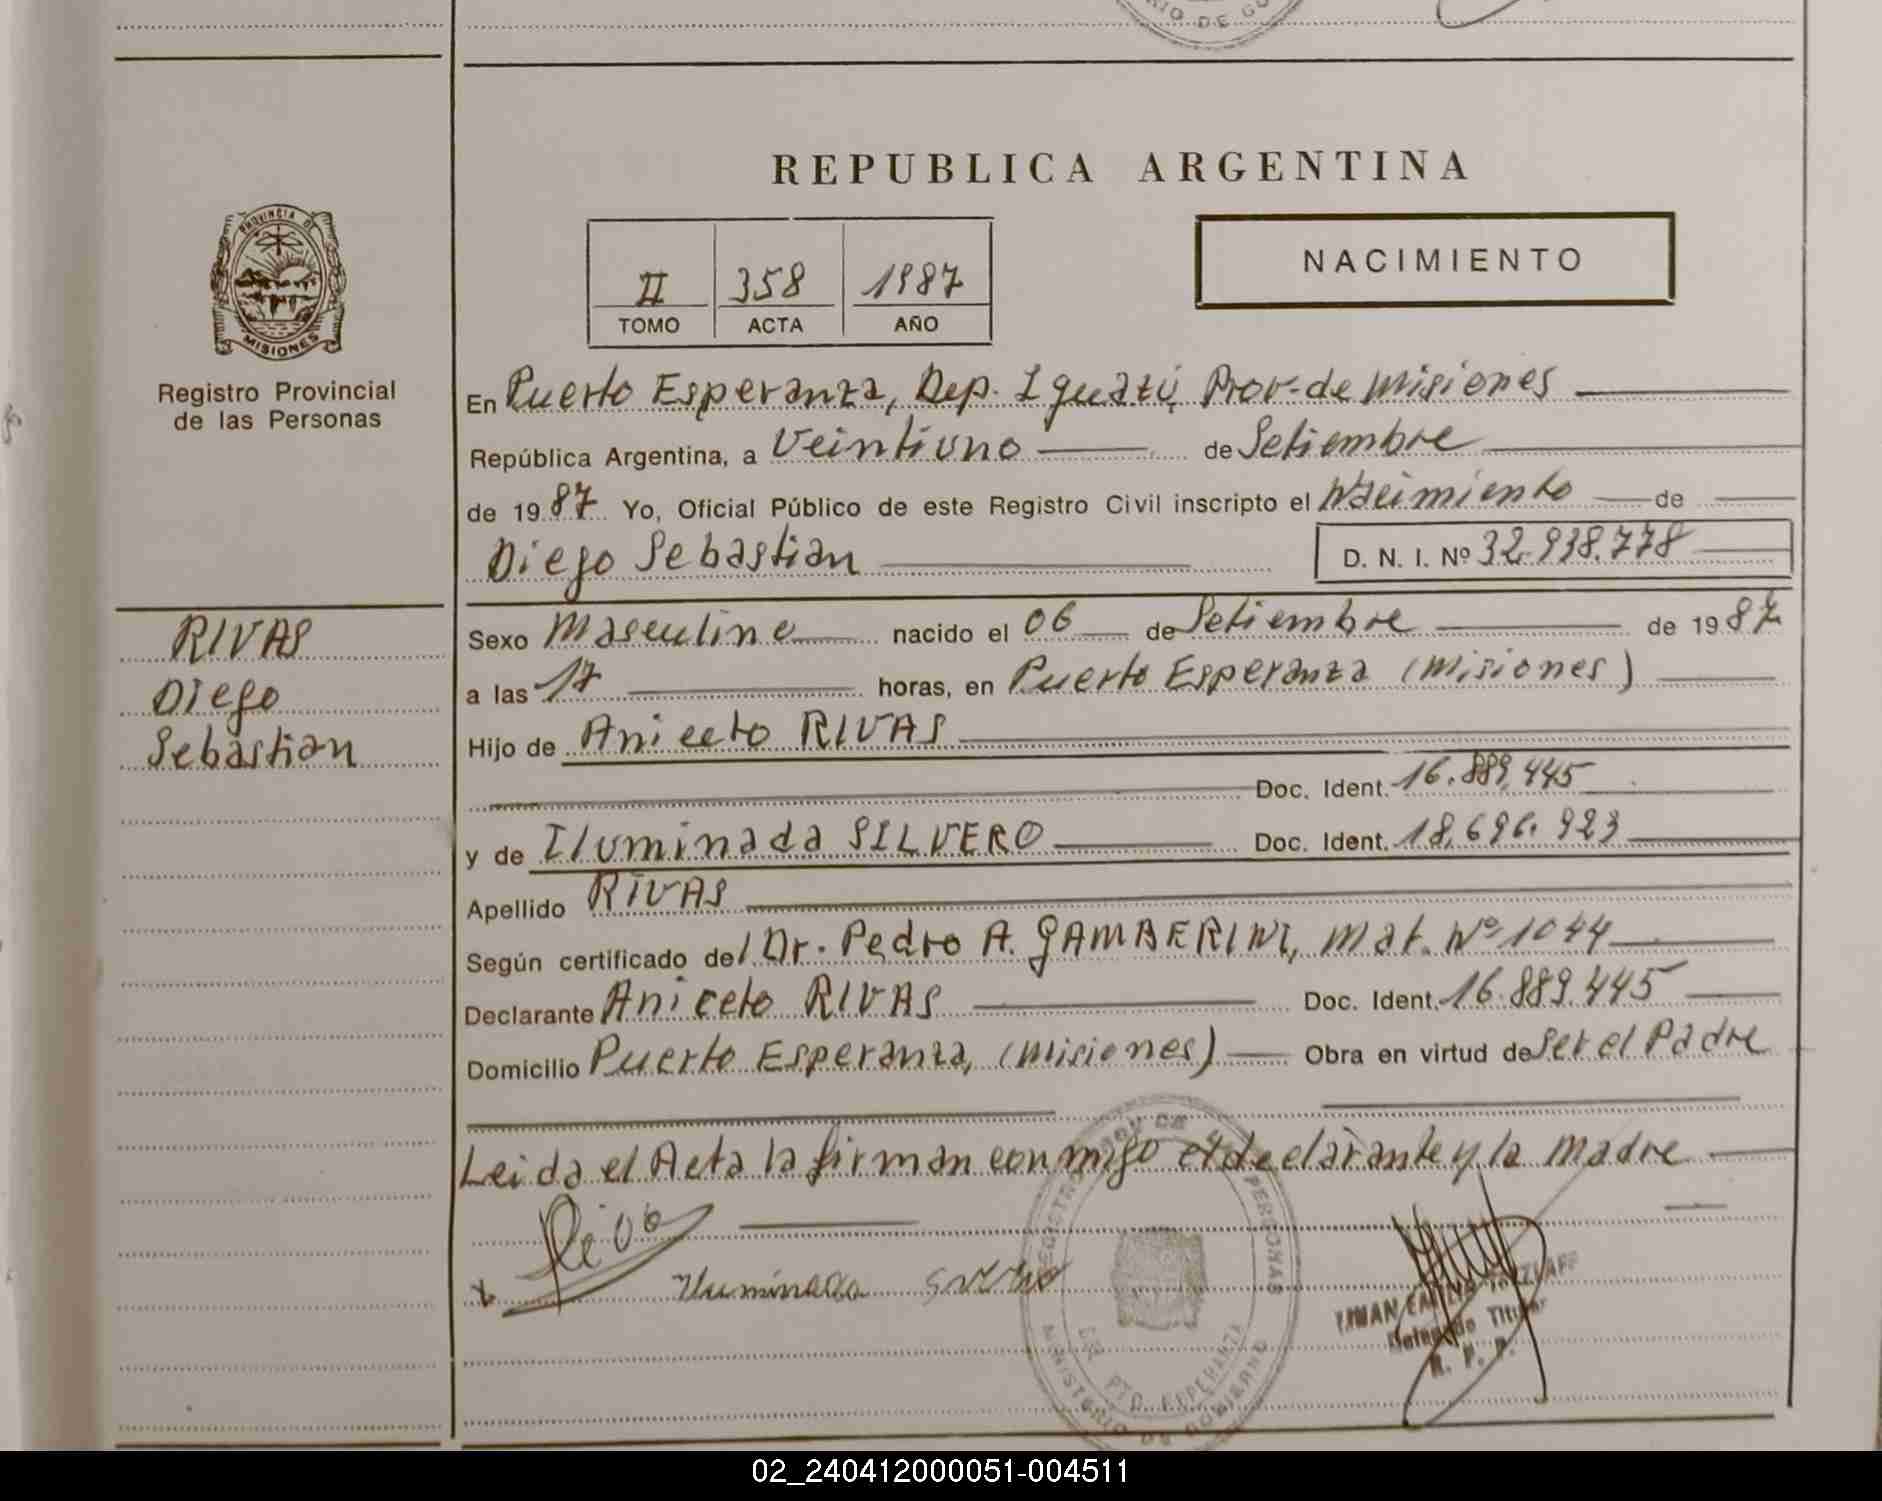 RIO DE GO
REPUBLICA ARGENTINA
PROVINCIA DE
MISIONES
Registro Provincial
de las Personas
II 358 1987
TOMO ACTA AÑO
NACIMIENTO
En Puerto Esperanza, Dep. Iguazú, Prov. de Misiones
República Argentina, a Veintiuno de Setiembre
de 1987 Yo, Oficial Público de este Registro Civil inscripto el Nacimiento de
Diego Sebastian D. N. I. Nº 32.938.778
RIVAS
Diego
Sebastian
Sexo Masculino nacido el 06 de Setiembre de 1987
a las 17 horas, en Puerto Esperanza (Misiones)
Hijo de Aniceto RIVAS
Doc. Ident. 16.889.445
y de Iluminada SILVERO Doc. Ident. 18.696.923
Apellido RIVAS
Según certificado del Dr. Pedro A. GAMBERINI, Mat. Nº 1044
Declarante Aniceto RIVAS Doc. Ident. 16.889.445
Domicilio Puerto Esperanza, (Misiones) Obra en virtud de Ser el Padre
Leida el Acta la firman conmigo el declarante y la Madre
Iluminada
DE PERSONAS
PTO. ESPERANZA
MINISTERIO DE GOBIERNO
Delegado Titular
R. P. P.
02_240412000051-004511